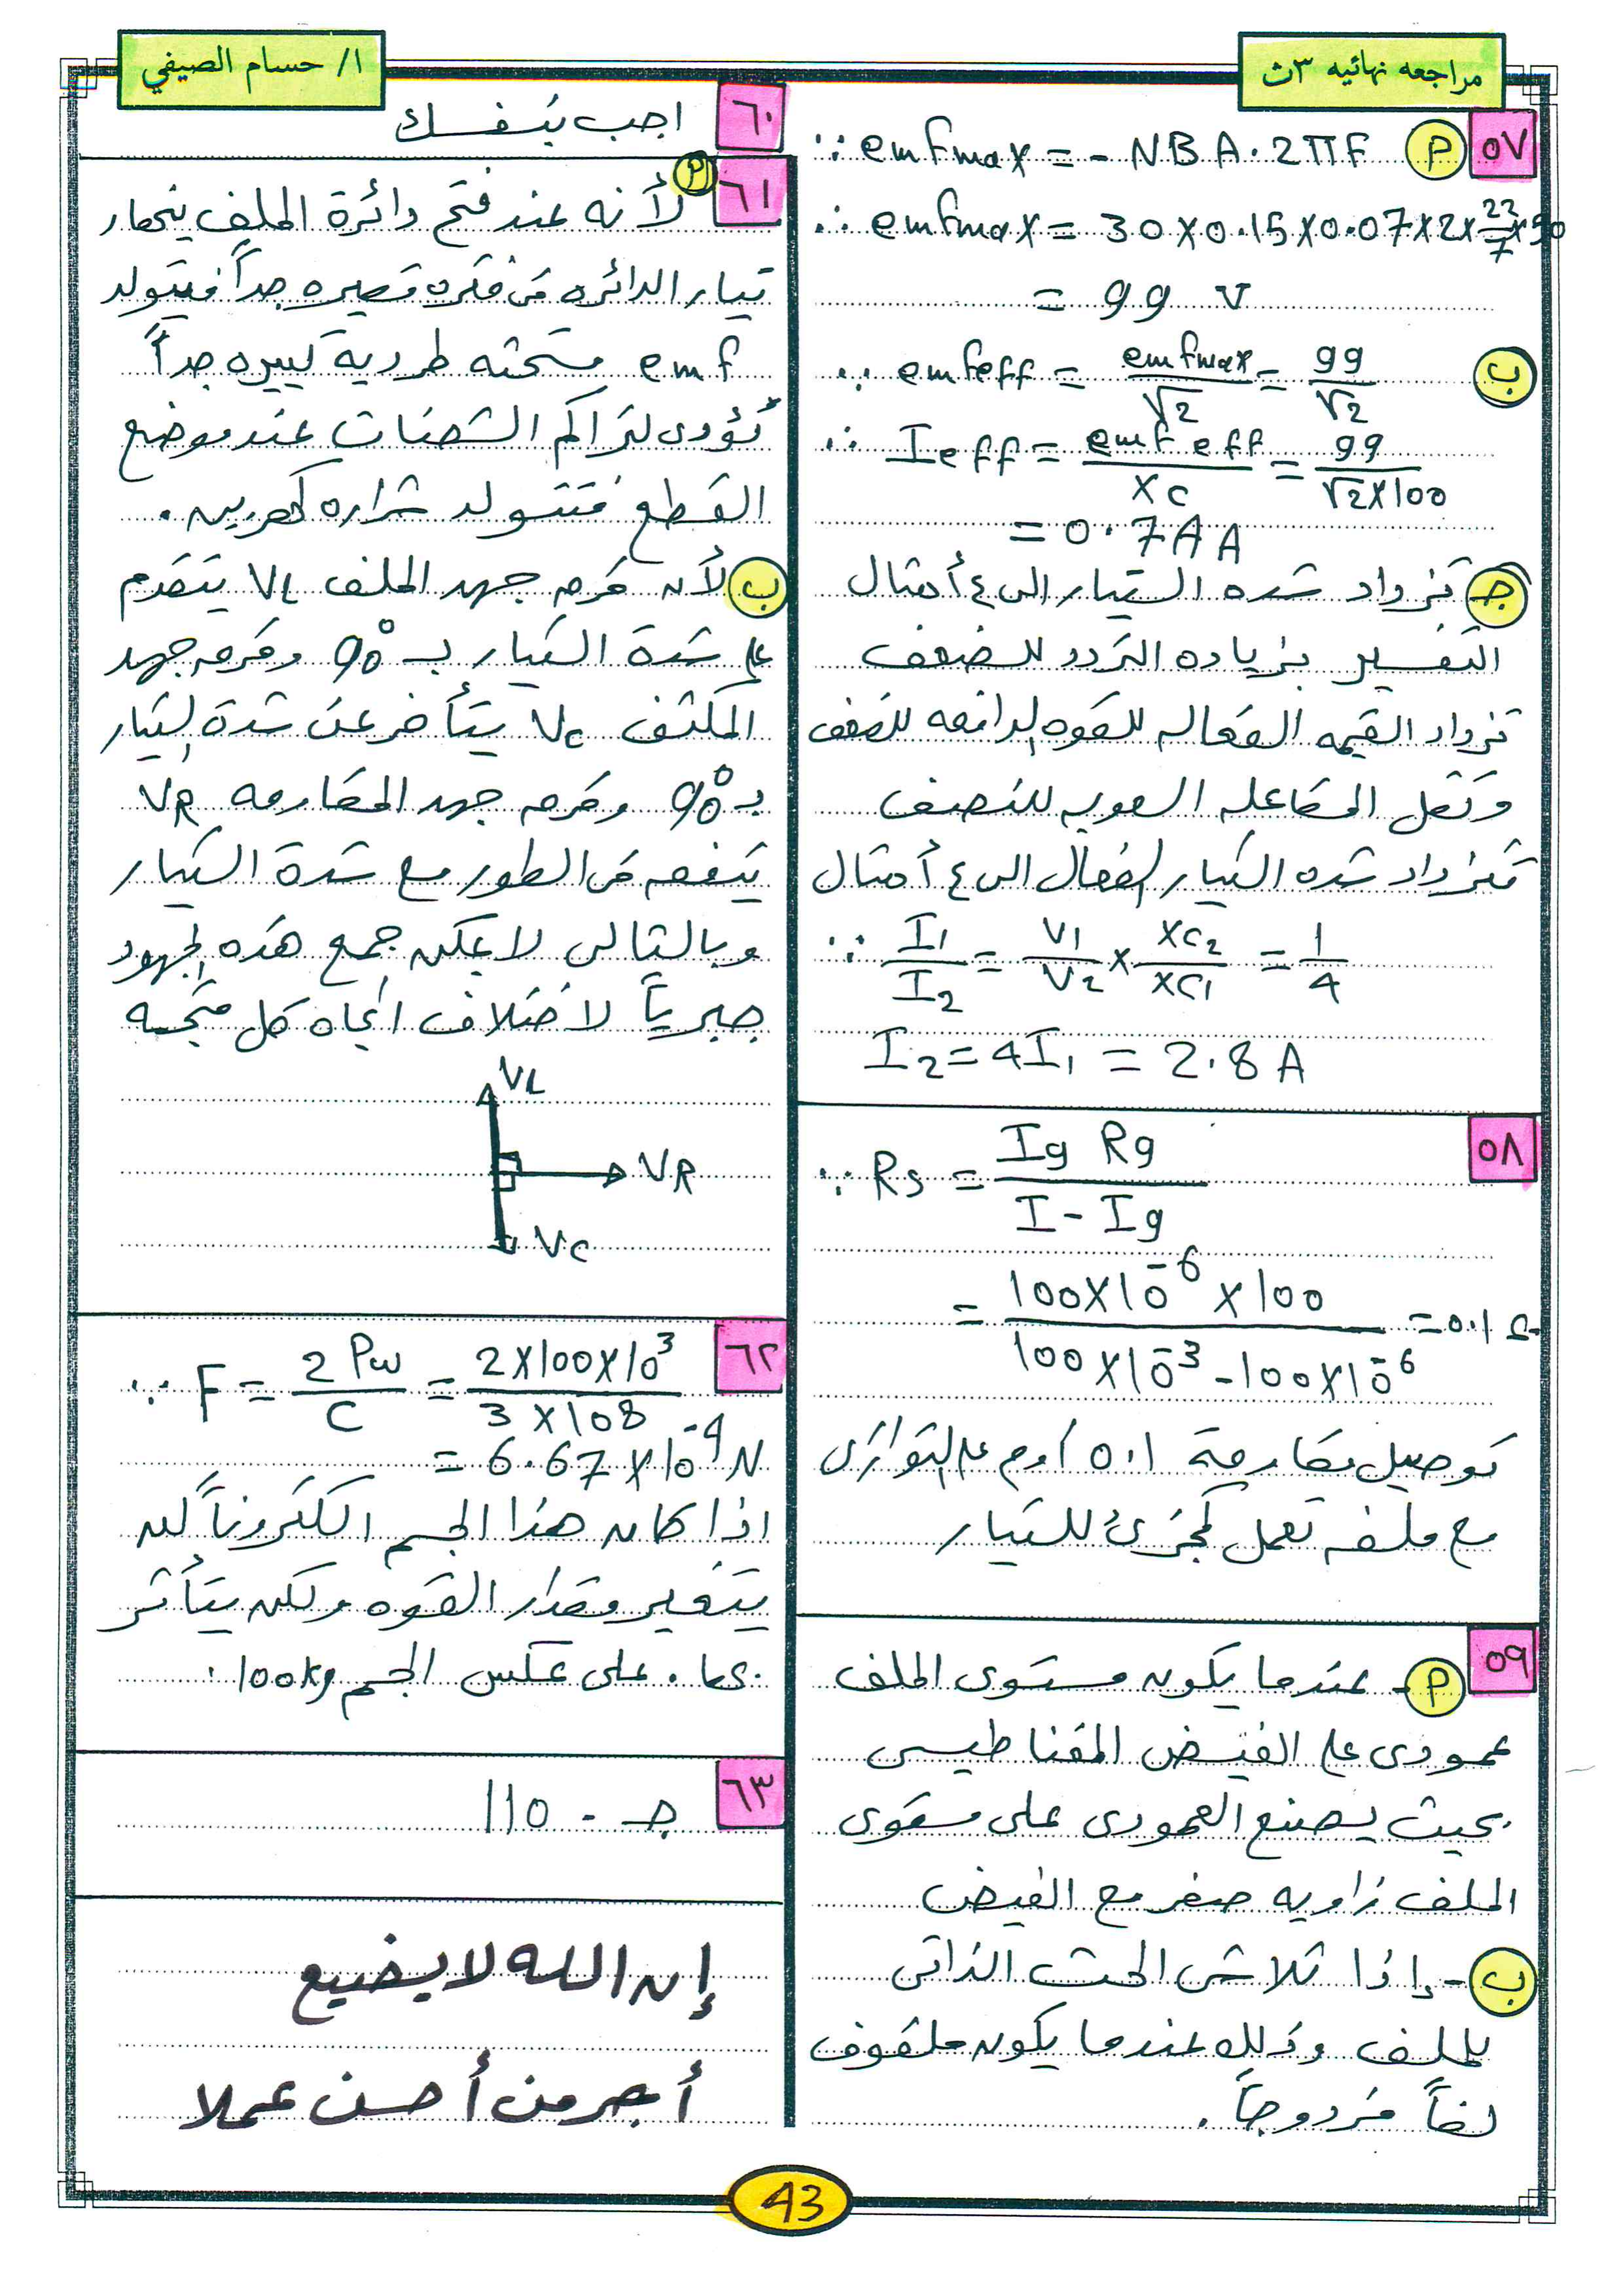 مراجعه نهائيه ٣ث
ا/ حسام الصيفي
٥٧ (م) ∵ emf max = - NBA.2πF
∴ emf max = 30 x 0.15 x 0.07 x 2 x 22/7 x 50
= 99 V
(ب) ∵ emf eff = emf max / √2 = 99 / √2
∴ I eff = emf eff / Xc = 99 / √2 x 100
= 0.7 A A
(جـ) تزداد شده التيار الى ٤ أمثال
التفسير بزياده التردد للضعف
تزداد القيمه الفعاله للقوه الدافعه للضعف
وتقل المفاعله السعويه للنصف
فتزداد شده التيار الفعال الى ٤ أمثال
∴ I1 / I2 = V1 / V2 x XC2 / XC1 = 1 / 4
I2 = 4I1 = 2.8 A
٥٨
∵ Rs = Ig Rg / I - Ig
= 100 x 10⁻⁶ x 100 / 100 x 10⁻³ - 100 x 10⁻⁶ = 0.1 Ω
توصيل مقاومة 0.1 أوم على التوازى
مع ملفه تعمل كمجزئ للتيار
٥٩ (م) - عندما يكون مستوى الملف
عمودى على الفيض المغناطيسى
بحيث يصنع العمودى على مستوى
الملف زاويه صفر مع الفيض
(ب) - إذا تلاشى الحث الذاتى
للملف وذلك عندما يكون ملفوف
لفاً مزدوجاً .
٦٠ اجب بنفسك
٦١ (م) لأنه عند فتح دائرة الملف ينهار
تيار الدائره فى فتره قصيره جداً فيتولد
emf مستحثه طردية كبيره جداً
تؤدى لتراكم الشحنات عند موضع
القطع فتتولد شراره كهربيه .
(ب) لأن فرق جهد الملف VL يتقدم
على شدة التيار بـ 90° وفرق جهد
المكثف Vc يتأخر عن شدة التيار
بـ 90° وفرق جهد المقاومه VR
يتفق فى الطور مع شدة التيار
وبالتالى لا يمكن جمع هذه الجهود
جبرياً لاختلاف اتجاه كل متجه
VL
VR
VC
٦٢
∵ F = 2 Pw / C = 2 x 100 x 10³ / 3 x 10⁸
= 6.67 x 10⁻⁴ N
اذا كان هذا الجسم الكتروناً لن
يتغير مقدار القوه ولكن يتأثر
بها . على عكس الجسم 100kg .
٦٣ جـ - 110
إن الله لا يضيع
أجر من أحسن عملا
43